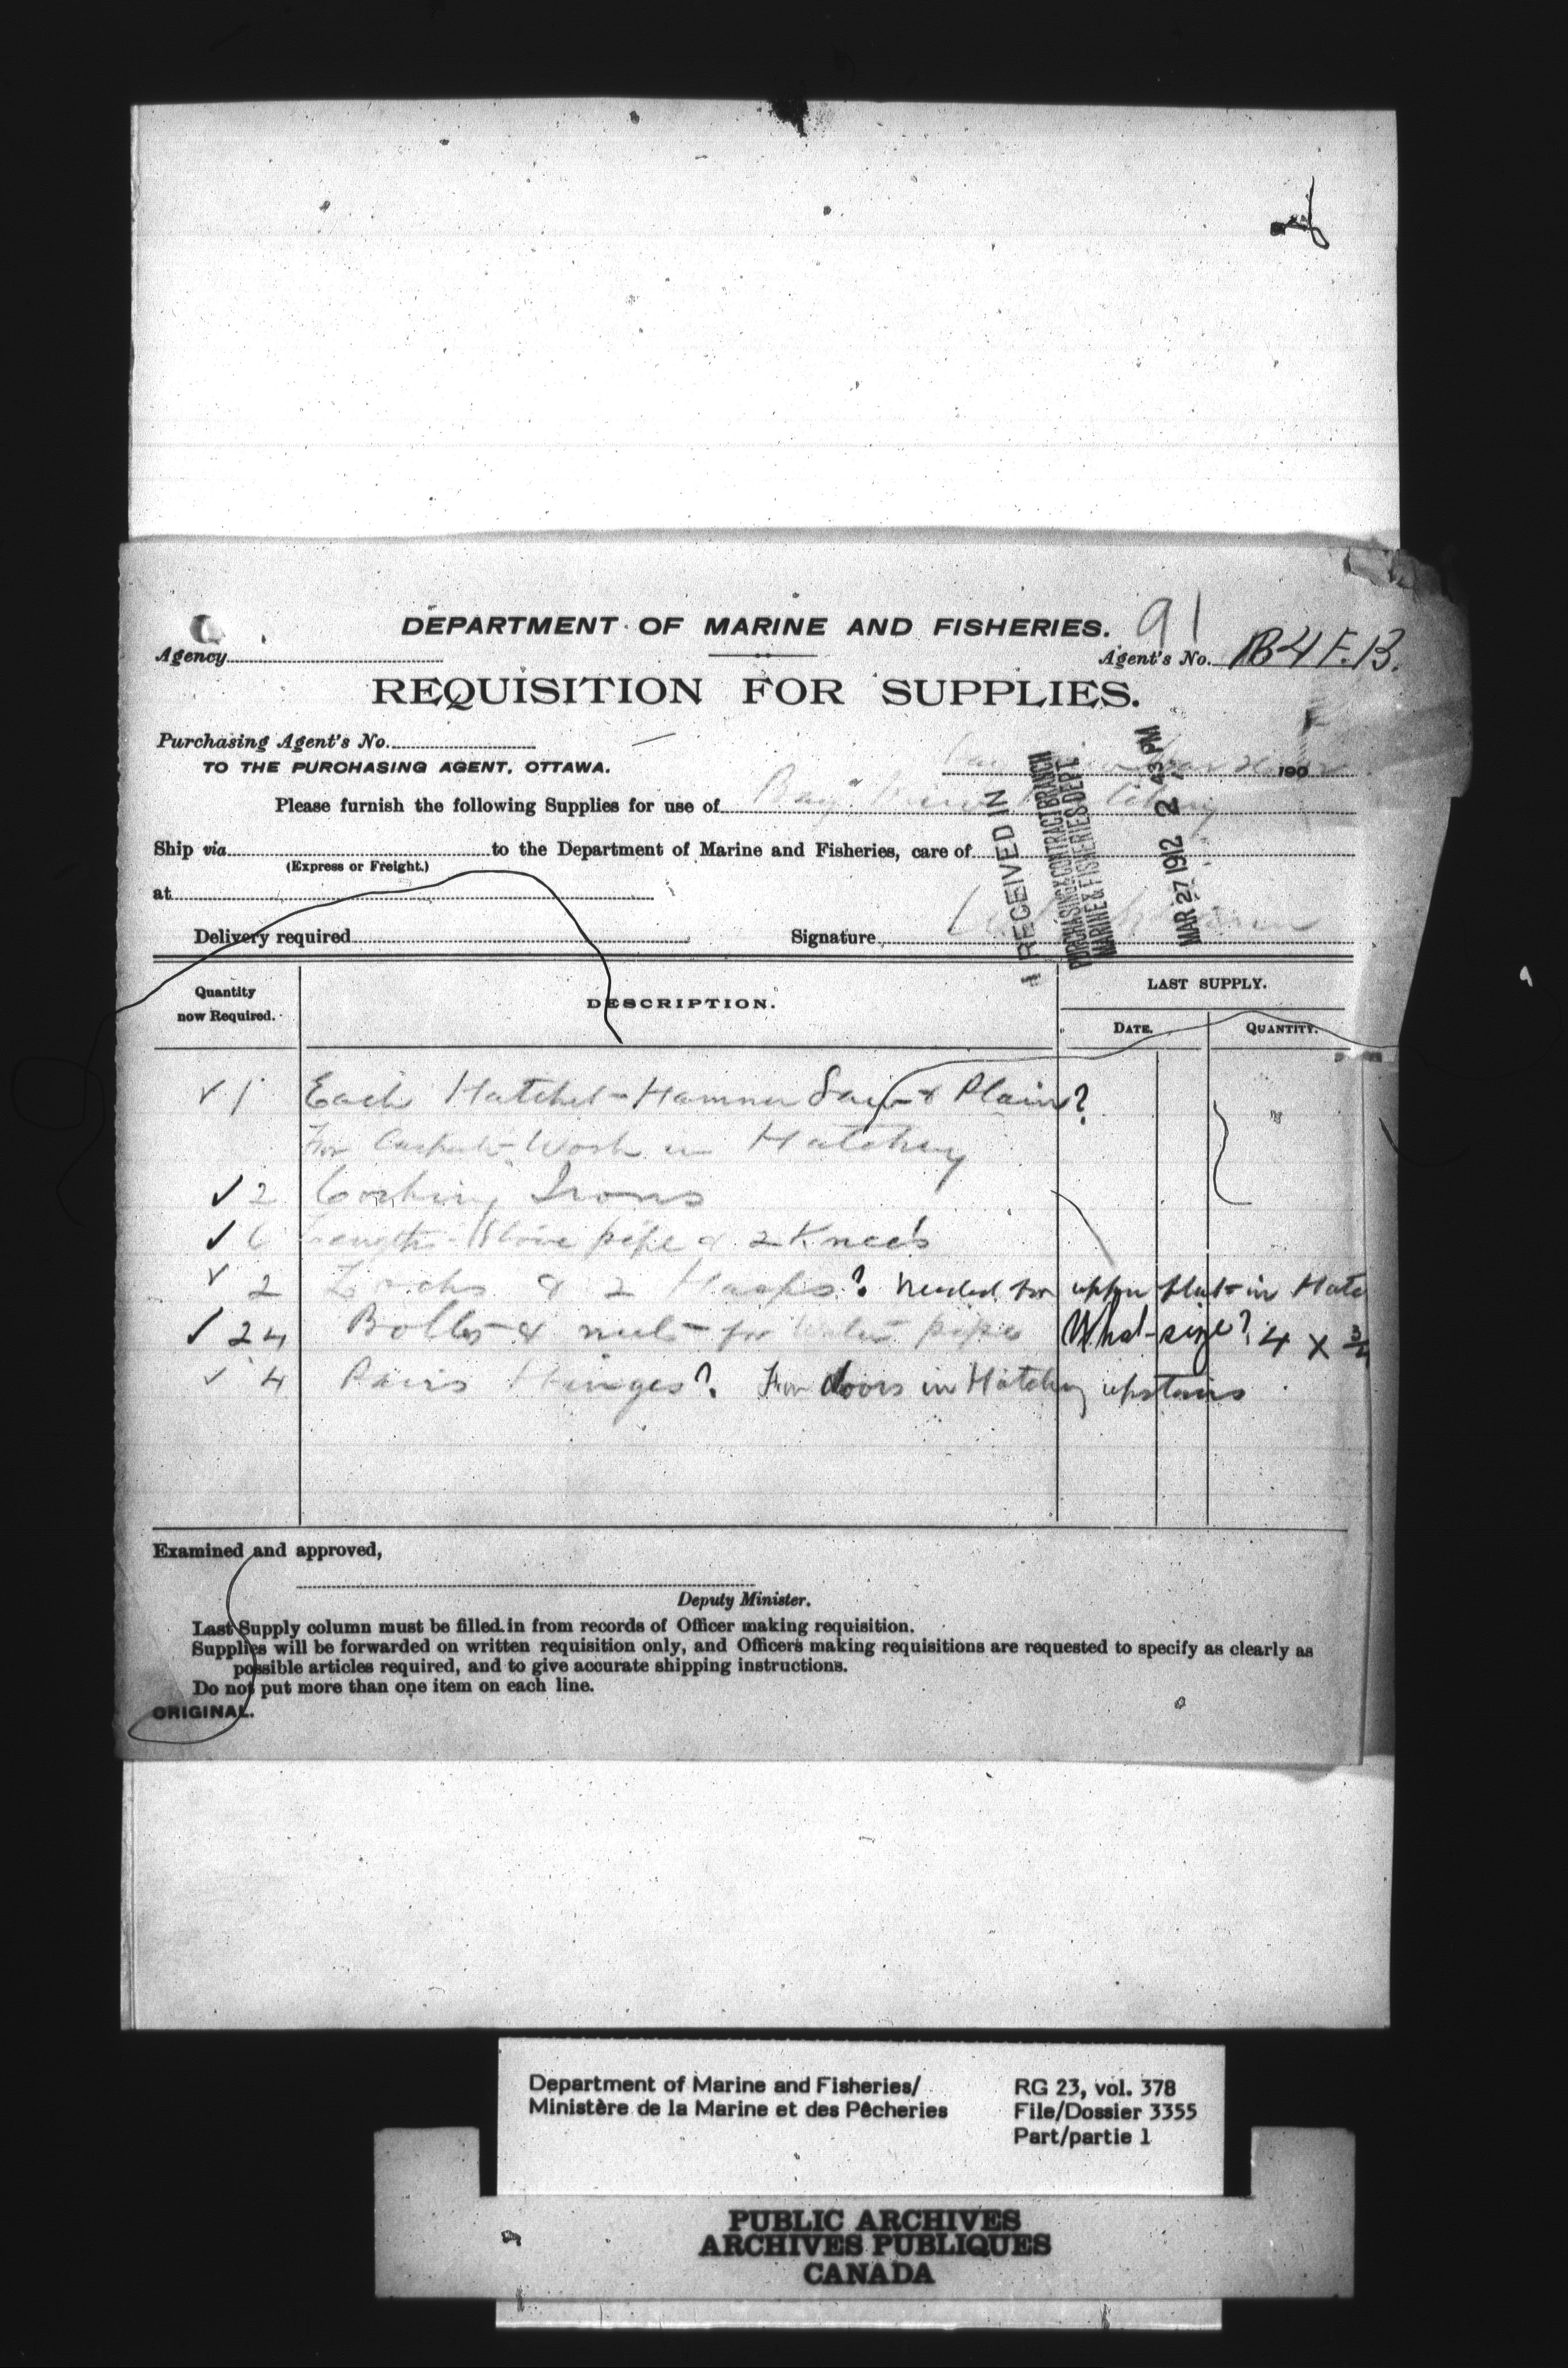 DEPARTMENT OF MARINE AND FISHERIES.
91
Agency
Agent's No. 184 F.B.
REQUISITION FOR SUPPLIES.
Purchasing Agent's No.
TO THE PURCHASING AGENT, OTTAWA.
190
Please furnish the following Supplies for use of Bay View Hatchery
Ship via to the Department of Marine and Fisheries, care of
(Express or Freight.)
at
Delivery required Signature
RECEIVED IN
PURCHASING & CONTRACT BRANCH
MARINE & FISHERIES DEPT.
MAR 27 1912 2 43 PM
Quantity now Required.
DESCRIPTION.
LAST SUPPLY.
DATE.
QUANTITY.
✓ 1 Each Hatchet - Hammer Saw & Plain?
For Work in Hatchery
✓ 2 Corking Irons
✓ 6 Lengths Stove pipe & 2 Knee's
✓ 2 Locks & 2 Hasps? Needed for upper flat in Hatc
✓ 24 Bolts & nuts for water pipe What size? 4 x 3/4
✓ 4 Pairs Hinges? For doors in Hatchery upstairs
Examined and approved,
Deputy Minister.
Last Supply column must be filled in from records of Officer making requisition.
Supplies will be forwarded on written requisition only, and Officers making requisitions are requested to specify as clearly as
possible articles required, and to give accurate shipping instructions.
Do not put more than one item on each line.
ORIGINAL.
Department of Marine and Fisheries/
Ministère de la Marine et des Pêcheries
RG 23, vol. 378
File/Dossier 3355
Part/partie 1
PUBLIC ARCHIVES
ARCHIVES PUBLIQUES
CANADA